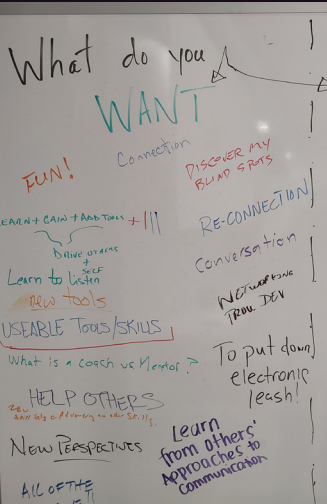 What do you
WANT
Connection
FUN!
DISCOVER MY
BLIND SPOTS
LEARN + GAIN + ADD TOOLS + ||||
DRIVE OTHERS
+
SELF
Learn to listen
RE-CONNECTION
Conversation
new tools
NETWORKING
USEABLE TOOLS/SKILLS
What is a coach vs Mentor?
To put down
electronic
leash!
HELP OTHERS
NEW
NEW PERSPECTIVES
Learn
from Others'
Approaches to
Communication
ALL OF THE